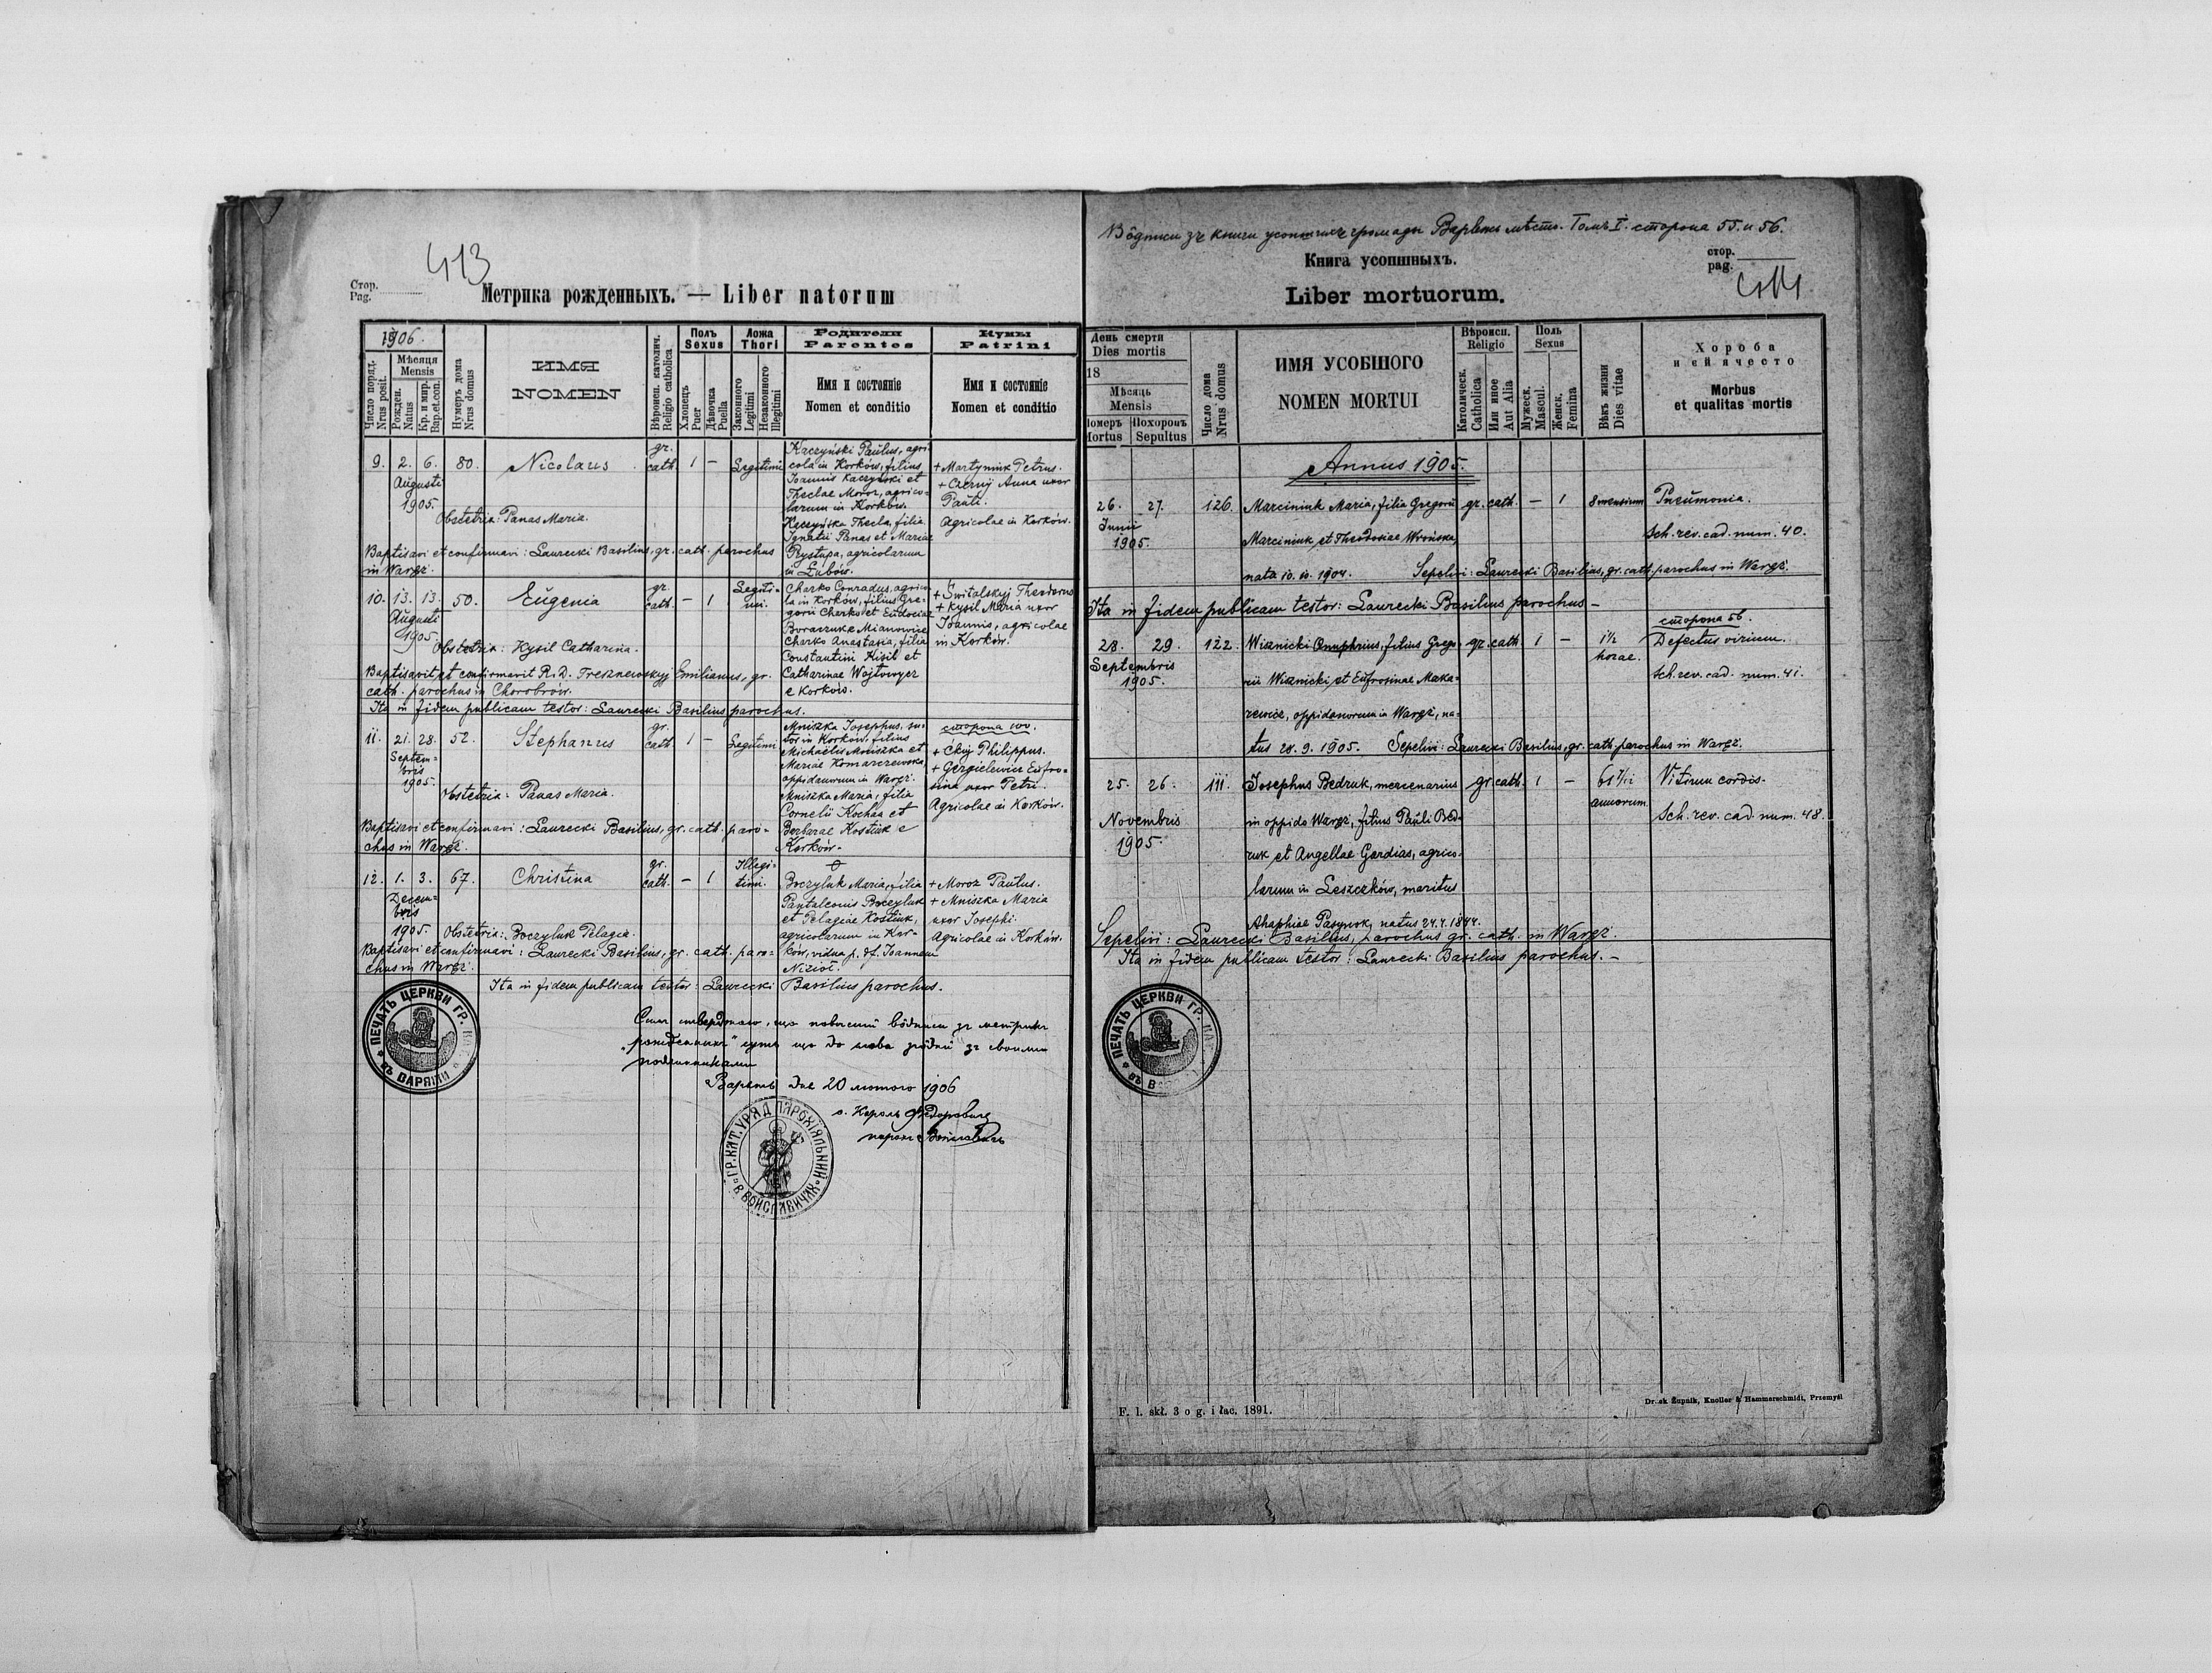 413
Стор.
Pag.
Метрика рожденныхъ. — Liber natorum
1906.
Число поряд.
Nrus posit.
Мѣсяця
Mensis
Рожден.
Natus
Кр. и мир.
Bap. et con.
Нумеръ дома
Nrus domus
ИМЯ
NOMEN
Вѣроисп. католич.
Religio catholica
Полъ
Sexus
Хлопецъ
Puer
Дѣвочка
Puella
Ложа
Thori
Законного
Legitimi
Незаконного
Illegitimi
Родители
Parentes
Имя и состояніе
Nomen et conditio
Кумы
Patrini
Имя и состояніе
Nomen et conditio
9. 2. 6. 80. Nicolaus gr. cath. 1 – Legitimi
Augusti
1905.
Obstetrix: Panas Maria.
Baptisavi et confirmavi: Laurecki Basilius, gr. cath. parochus
in Waręż.
Kaczyński Paulus, agri-
cola in Korków, filius
Joannis Kaczyński et
Theclae Moroz, agrico-
larum in Korków.
Kaczyńska Thecla, filia
Ignatii Panas et Mariae
Prystupa, agricolarum
in Łubów.
+ Martyniuk Petrus.
+ Czernij Anna uxor
Pauli.
Agricolae in Korków.
10. 13. 13. 50. Eugenia gr. cath. – 1 Legiti-
mi.
Augusti
1905.
Obstetrix: Kysil Catharina.
Baptisavit et confirmavit R. D. Tresznewskyj Emilianus, gr.
cath. parochus in Chorobrów.
Ita in fidem publicam testor: Laurecki Basilius parochus.
Charko Conradus, agrico-
la in Korków, filius Gre-
gorii Charko et Eudociae
Charko Anastasia, filia
Constantini Kisil et
Catharinae Wojtowycz
e Korków.
+ Świtalskyj Theodorus
+ Kysil Maria uxor
Joannis, agricolae
in Korków.
11. 21. 28. 52. Stephanus gr. cath. 1 – Legitimi
Septem-
bris
1905.
Obstetrix: Panas Maria.
Baptisavi et confirmavi: Laurecki Basilius, gr. cath. paro-
chus in Waręż.
Mniszka Josephus, su-
tor in Korków, filius
Michaelis Mniszka et
Mariae Komarzewska,
oppidanorum in Waręż.
Mniszka Maria, filia
Cornelii Kochan et
Barbarae Kostiuk e
Korków.
сторона 100.
+ Ckij Philippus.
+ Gergielewicz Eufro-
sina uxor Petri.
Agricolae in Korków.
12. 1. 3. 67. Christina gr. cath. – 1 Illegi-
timi.
Decem-
bris
1905. Obstetrix: Boczyluk Pelagia.
Baptisavi et confirmavi: Laurecki Basilius, gr. cath. paro-
chus in Waręż.
Boczyluk Maria, filia
Pantaleonis Boczyluk
et Pelagiae Kostiuk,
agricolarum in Kor-
ków, vidua p. df. Joannem
Nizioł.
+ Moroz Paulus.
+ Mniszka Maria
uxor Josephi.
Agricolae in Korków.
Ita in fidem publicam testor: Laurecki Basilius parochus.
ПЕЧАТЬ ЦЕРКВИ ГР. КАТ.
въ ВАРЯЖИ
що до слова згôднй зъ своими
Варяжъ дне 20 лютого 1906
о. Кароль Федоровичъ
парохъ
ГР. КАТ. УРЯД ПАРОХІЯЛЬНИЙ
В ВОЙСЛАВИЧАХ
Вôдписи зъ книги усопшихъ громады Варяжъ мѣсто. Томъ I. сторона 55. и 56.
Книга усопшныхъ.
Liber mortuorum.
стор.
pag.
414
День смерти
Dies mortis
18
Мѣсяць
Mensis
Померъ
Mortus
Похоронъ
Sepultus
Число дома
Nrus domus
ИМЯ УСОБШОГО
NOMEN MORTUI
Вѣроисп.
Religio
Католическ.
Catholica
Или иное
Aut Alia
Поль
Sexus
Мужеск.
Mascul.
Женск.
Femina
Вѣкъ жизни
Dies. vitae
Хороба
и ей ячесто
Morbus
et qualitas mortis
Annus 1905.
26. 27. 126. Marciniuk Maria, filia Gregorii gr. cath. – 1 8 mensium Pneumonia.
Junii
1905.
Marciniuk et Theodosiae Wrońska, Sch. rev. cad. num. 40.
nata 10. 10. 1904. Sepelivi: Laurecki Basilius, gr. cath. parochus in Waręż.
Ita in fidem publicam testor: Laurecki Basilius parochus –
сторона 56.
28. 29. 122. Wisznicki Onuphrius, filius Grego- gr. cath. 1 – 1½ horae. Defectus virium.
Septembris
1905.
rii Wisznicki et Eufrosinae Maka- Sch. rev. cad. num. 41.
rewicz, oppidanorum in Waręż, na-
tus 28. 9. 1905. Sepelivi: Laurecki Basilius, gr. cath. parochus in Waręż.
25. 26. 111. Josephus Bedruk, mercenarius gr. cath. 1 – 61 7/12 annorum Vitium cordis.
Novembris
1905.
in oppido Waręż, filius Pauli Bed- Sch. rev. cad. num. 48.
ruk et Angellae Gardias, agrico-
larum in Leszczków, maritus
Ahaphiae Pasynok, natus 24. 4. 1844.
Sepelivi: Laurecki Basilius, parochus gr. cath. in Waręż.
Ita in fidem publicam testor: Laurecki Basilius parochus. –
ПЕЧАТЬ ЦЕРКВИ ГР. КАТ.
въ В
F. 1. skł. 3 o g. i łac. 1891.
Druk Żupnik, Knoller & Hammerschmidt, Przemyśl